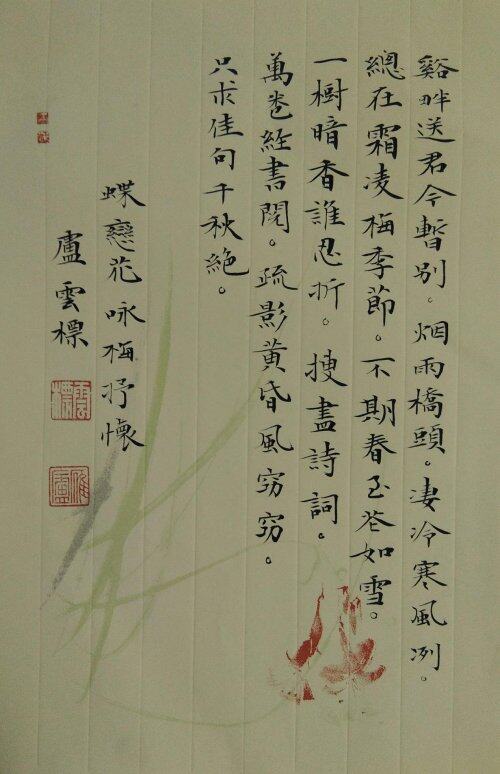 谿畔送君今暫别。烟雨橋頭。凄冷寒風冽。
總在霜凌梅季節。不期春至花如雪。
一樹暗香誰忍折。搜盡詩詞。
萬卷經書閲。疏影黄昏風窃窃。
只求佳句千秋絶。
蝶戀花咏梅抒懷
盧雲標
雲標